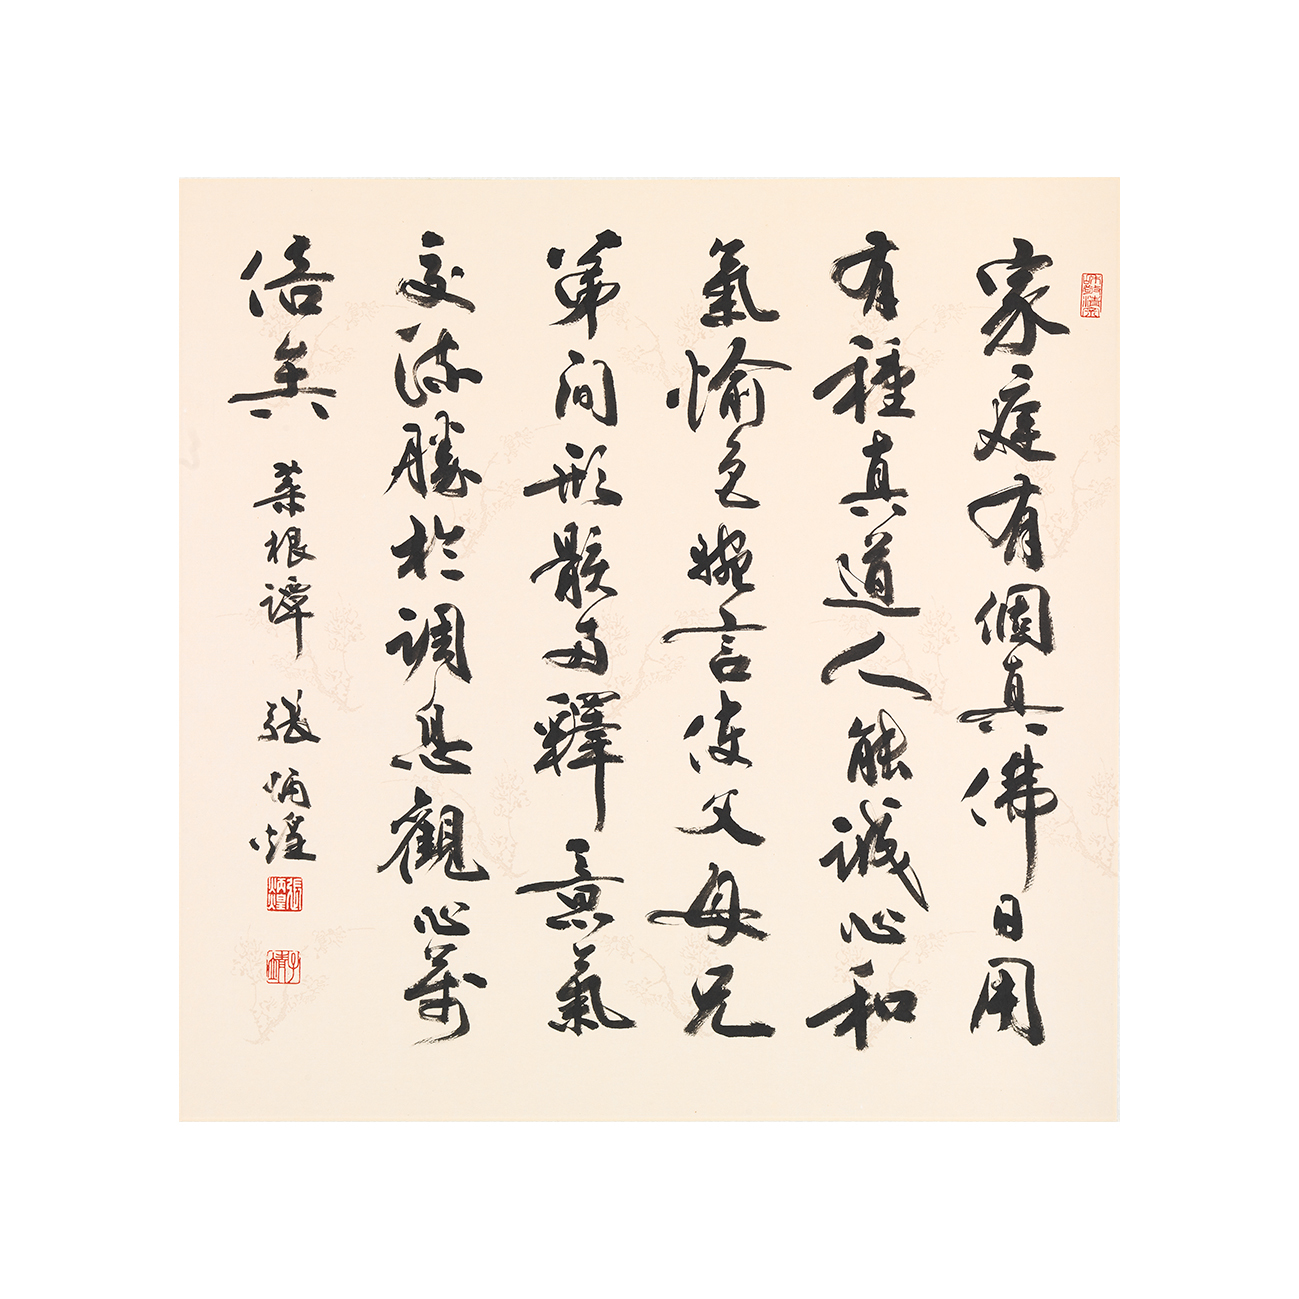 家庭有個真佛日用
有種真道人能誠心和
氣愉色婉言使父母兄
弟間形骸兩釋意氣
交流勝於調息觀心萬
倍矣 菜根譚 張炳煌
張炳煌